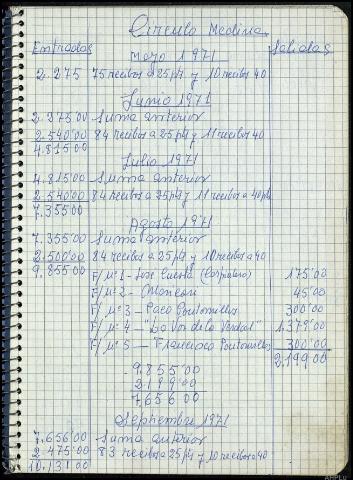 Circulo Medina
Entradas Salidas
Mayo 1971
2.275 75 recibos a 25 pts y 10 recibos 40
Junio 1971
2.275'00 Suma anterior
2.540'00 84 recibos a 25 pts y 11 recibos 40
4.815'00
Julio 1971
4.815'00 Suma anterior
2.540'00 84 recibos a 25 pts y 11 recibos a 40 pts
7.355'00
Agosto 1971
7.355'00 Suma anterior
2.500'00 84 recibos a 25 pts y 10 recibos a 40
9.855'00
F/ nº 1 - José Cuesta (Carpintero) 175'00
F/ nº 2 - 45'00
F/ nº 3 - Paco 300'00
F/ nº 4 - "La Voz de la Verdad" 1.379'00
F/ nº 5 - Francisco 300'00
2.199'00
9.855'00
2.199'00
7.656'00
Septiembre 1971
7.656'00 Suma anterior
2.475'00 83 recibos a 25 pts y 10 recibos a 40
10.131'00
AHPLu